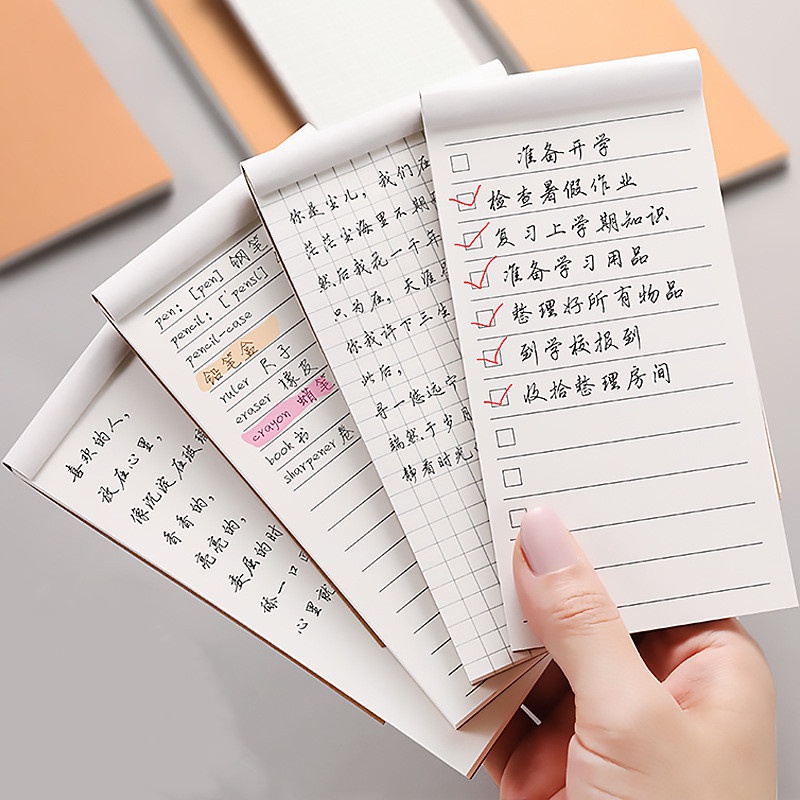 喜欢的人，
放在心里，
像沉淀在玻璃
香香的，
亮亮的，
委屈的时
舔一口
心里就
pen: [pen] 钢笔
pencil: [ pensl]
pencil-case
铅笔盒
ruler 尺子
eraser 橡皮
crayon 蜡笔
book 书
sharpener 卷
你是尘儿，我们在
茫茫尘海里不期
然后我花一千年
只为在，天涯
你我许下三生
此后，
寻一悠远宁
端然于岁月
静看时光
准备开学
检查暑假作业
复习上学期知识
准备学习用品
整理好所有物品
到学校报到
收拾整理房间